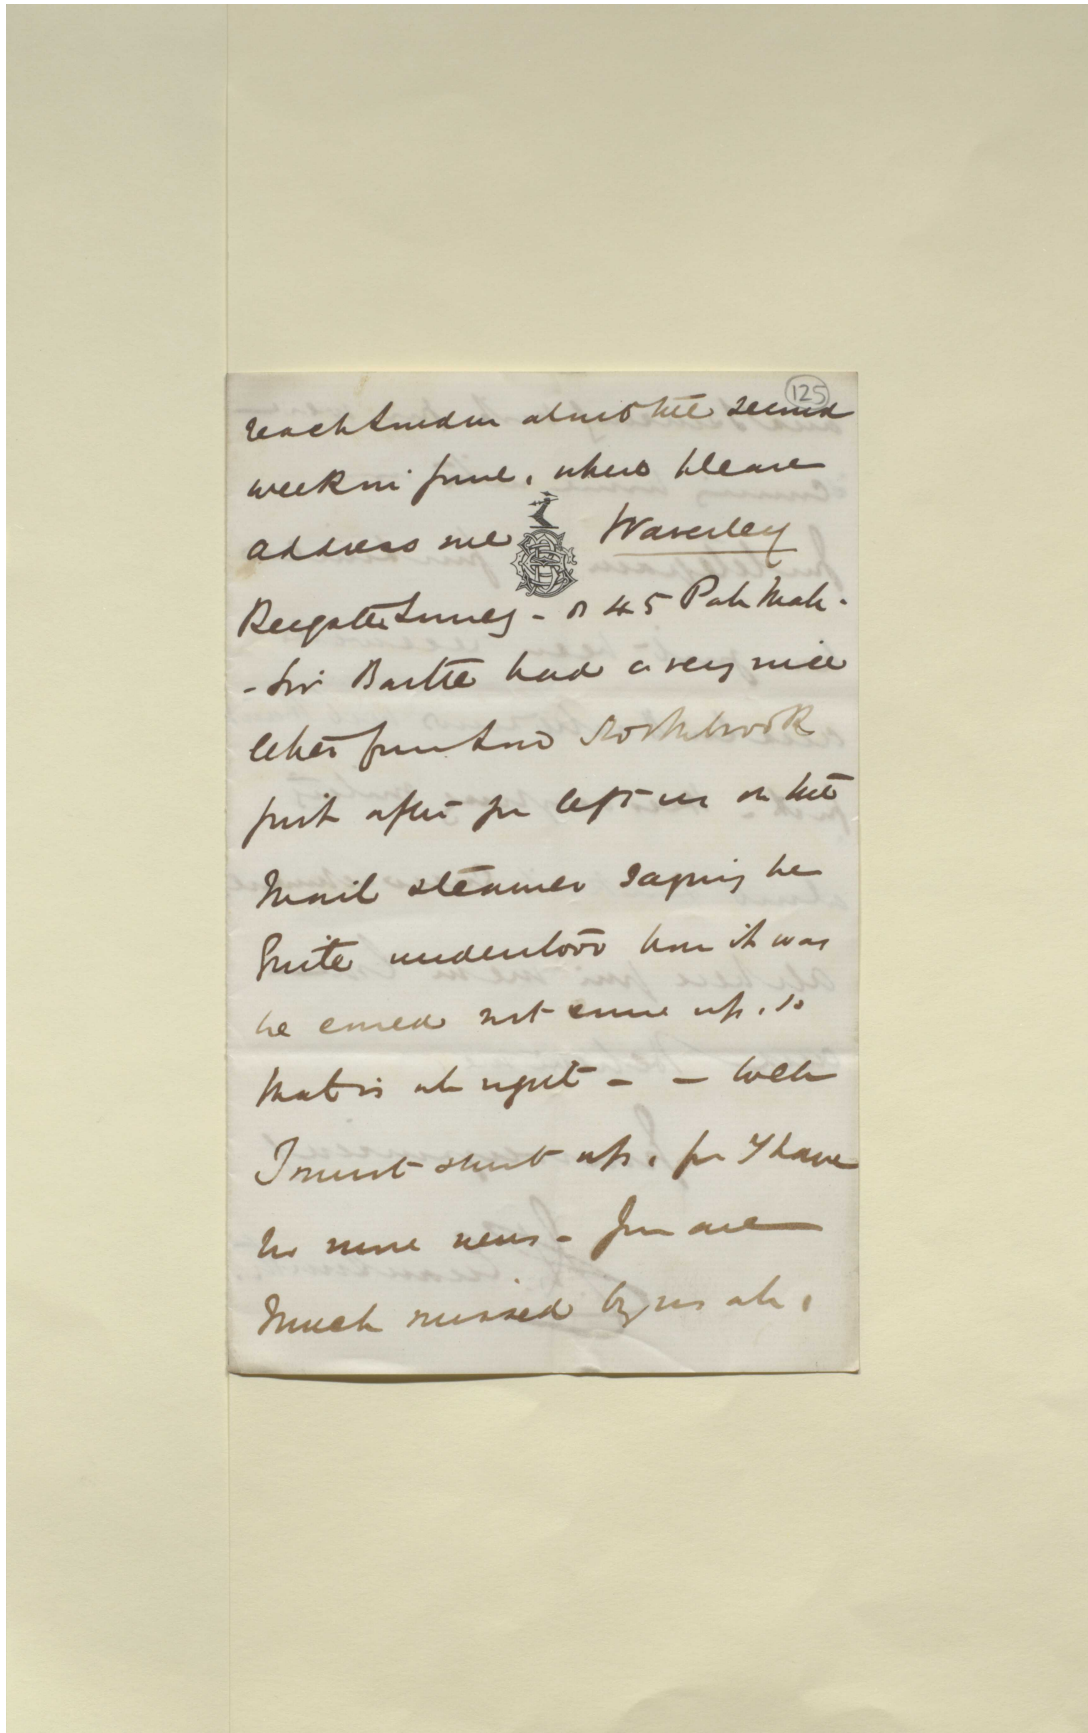 125
reach London about the second
week in June, where please
address me Waverley
Reigate Surrey - or 45 Pall Mall.
- Sir Bartle had a very nice
letter from Lord Northbrook
just after you left us in the
Mail steamer saying he
quite understood how it was
he could not come up. so
that is all right - - Well
I must shut up, for I have
no more news - You are
much missed by us all,